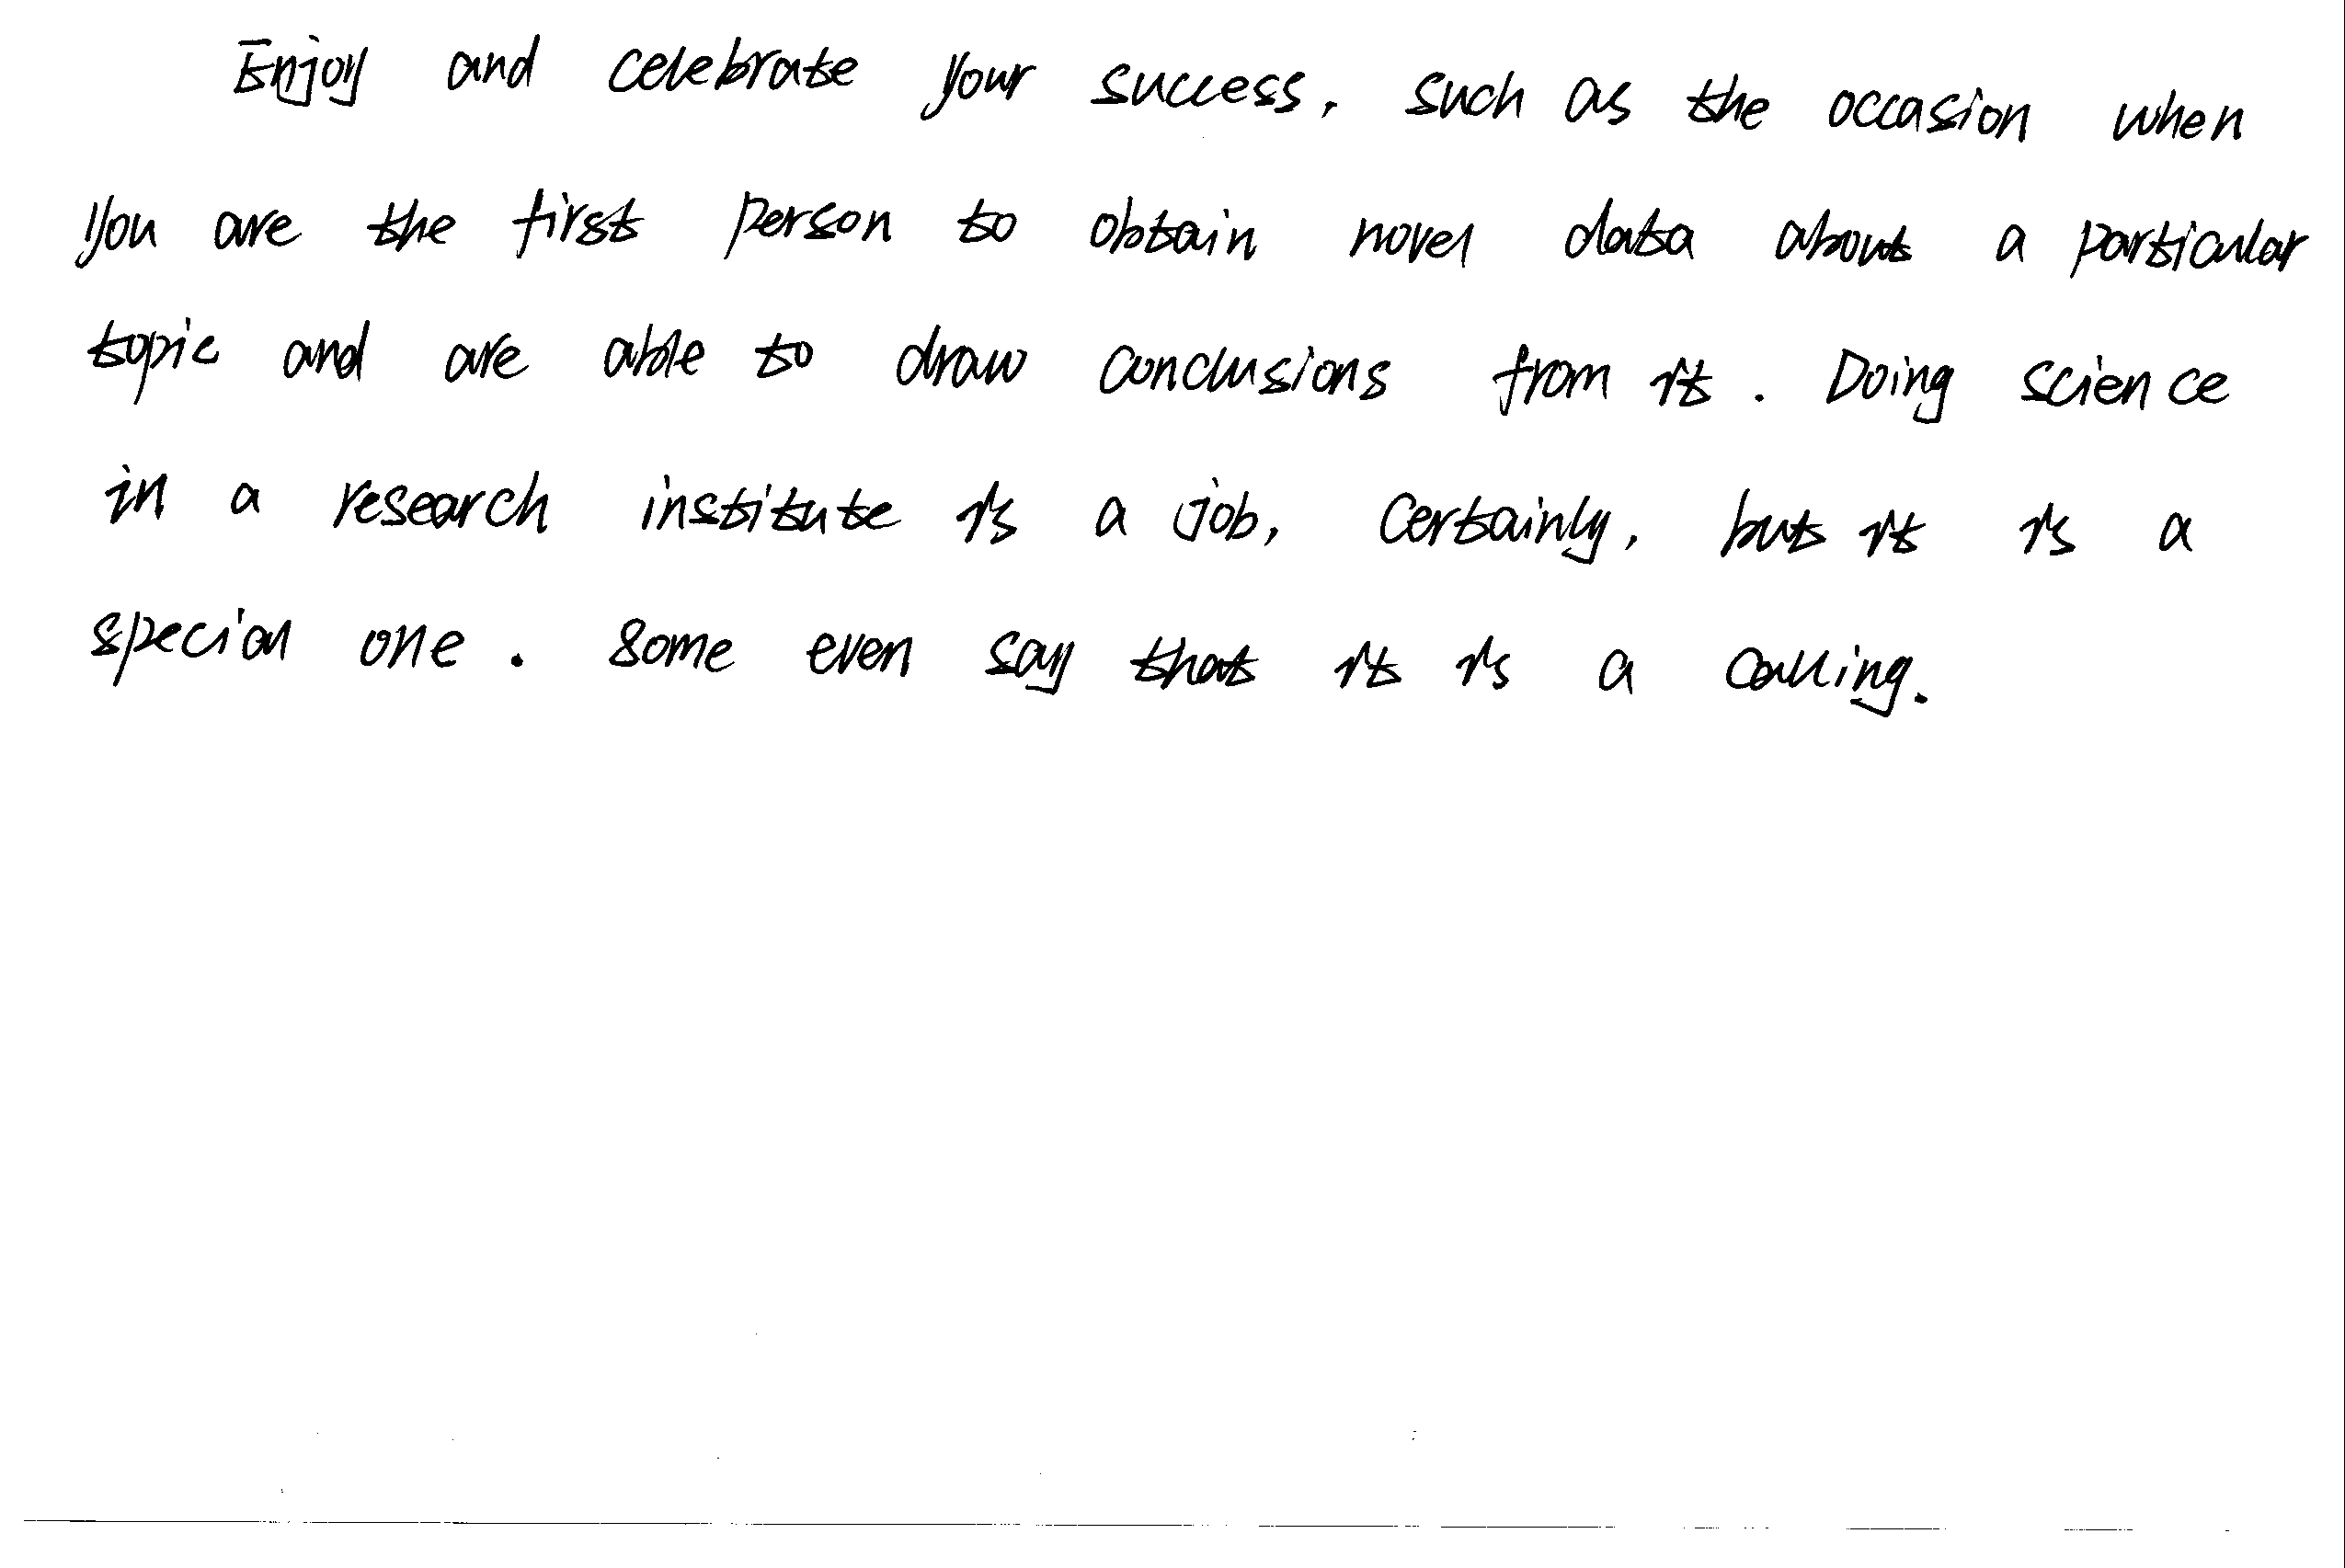 Enjoy and celebrate your success, such as the occasion when
you are the first person to obtain novel data about a particular
topic and are able to draw conclusions from it. Doing science
in a research institute is a job, certainly, but it is a
special one. Some even say that it is a calling.